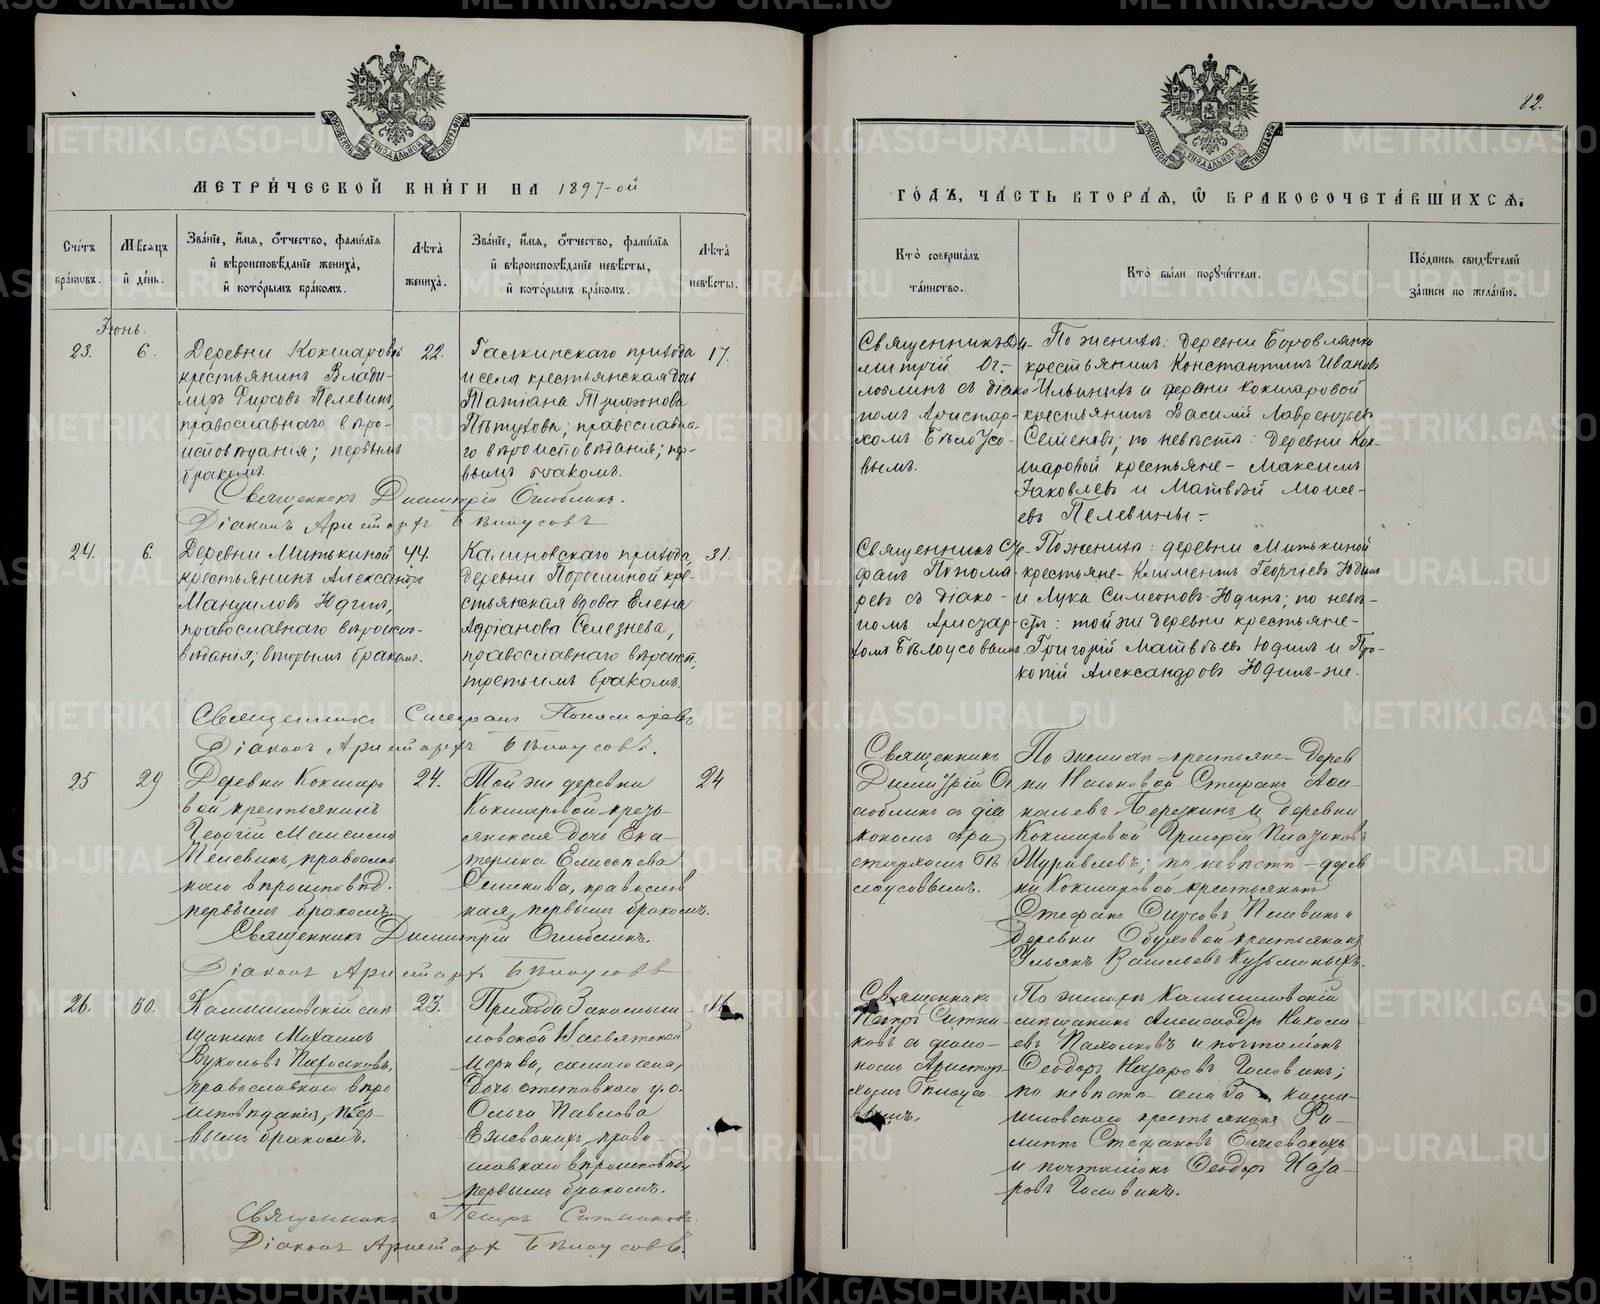 МЕТРИЧЕСКОЙ КНИГИ НА 1897-ой
Счетъ браковъ.
Мѣсяцъ и день.
Званіе, имя, отчество, фамилія и вѣроисповѣданіе жениха, и которымъ бракомъ.
Лѣта жениха.
Званіе, имя, отчество, фамилія и вѣроисповѣданіе невѣсты, и которымъ бракомъ.
Лѣта невѣсты.
Іюнь.
23.
6.
Деревни Кокшаровой
крестьянинъ Влади-
міръ Фирсовъ Пелевинъ,
православнаго вѣро-
исповѣданія; первымъ
бракомъ.
22.
Галкинскаго прихода
и села крестьянская дочь
Татіана Трифонова
Пѣтухова; православна-
го вѣроисповѣданія; пер-
вымъ бракомъ.
17.
Священникъ Димитрій Оглоблинъ.
Діаконъ Аристархъ Бѣлоусовъ
24.
6.
Деревни Митькиной
крестьянинъ Александръ
Мануиловъ Юдинъ,
православнаго вѣроиспо-
вѣданія; вторымъ бракомъ.
44.
Калиновскаго прихода,
деревни Порошиной кре-
стьянская вдова Елена
Адріанова Селезнева,
православнаго вѣроисп.
третьимъ бракомъ.
31.
Священникъ Стефанъ Пономаревъ
Діаконъ Аристархъ Бѣлоусовъ.
25
29
Деревни Кокшаро
вой крестьянинъ
Георгій Максимовъ
Пелевинъ, православ
наго вѣроисповѣд.
первымъ бракомъ.
24.
Той же деревни
Кокшаровой кресть
янская дочь Ека-
терина Елисеева
Семенова, православ
ная, первымъ бракомъ.
24
Священникъ Димитрій Оглоблинъ.
Діаконъ Аристархъ Бѣлоусовъ
26.
30.
Камышловскій мѣ
щанинъ Михаилъ
Вуколовъ Пахолковъ,
православнаго вѣро
исповѣданія, пер-
вымъ бракомъ.
23.
Прихода Закамыш-
ловской
церкви, самаго села,
дочь отставнаго
Ольга Павлова
право-
славнаго вѣроисповѣд.
первымъ бракомъ.
16
Священникъ Петръ Ситниковъ
Діаконъ Аристархъ Бѣлоусовъ.
82.
ГОДЪ, ЧАСТЬ ВТОРАЯ, Ѡ БРАКОСОЧЕТАВШИХСЯ.
Кто совершалъ таинство.
Кто были поручители.
Подпись свидѣтелей записи по желанію.
Священникъ Ди-
митрій Ог-
лоблинъ съ діако
номъ Аристар-
хомъ Бѣлоусо-
вымъ.
По женихѣ: деревни Боровлянки
крестьянинъ Константинъ Ивановъ
Ильиныхъ и деревни Кокшаровой
крестьянинъ Василій Лаврентьевъ
Семеновъ; по невѣстѣ: деревни Кок-
шаровой крестьяне - Максимъ
Іаковлевъ и Матвѣй Моисе-
евъ Пелевины.-
Священникъ Сте-
фанъ Понома-
ревъ съ діако-
номъ Аристар-
хомъ Бѣлоусовымъ.
По женихѣ: деревни Митькиной
крестьяне - Климентъ Георгіевъ Юдинъ
и Лука Симеоновъ Юдинъ; по невѣ-
стѣ: той же деревни крестьяне-
Григорій Матвѣевъ Юдинъ и Про-
копій Александровъ Юдинъ-же.
Священникъ
Димитрій Ог
лоблинъ съ діа
кономъ Ари
стархомъ Бѣ
лоусовымъ.
По женихѣ - крестьяне - дерев
ни Стефанъ
Бережинъ и деревни
Кокшаровой Григорій Платоновъ
Журавлевъ; по невѣстѣ - дерев
ни Кокшаровой крестьянинъ
Стефанъ Фирсовъ Пелевинъ и
деревни Обуховой крестьянинъ
Ульянъ Васильевъ Кузьминыхъ.
Священникъ
Петръ Ситни
ковъ съ діако-
номъ Аристар
хомъ Бѣлоусо
вымъ.
По женихѣ Камышловскій
мѣщанинъ Александръ Никола
евъ Пахолковъ и почталіонъ
Ѳеодоръ Назаровъ Головинъ;
по невѣстѣ села Закамы-
шловскаго крестьянинъ Фи-
липпъ Стефановъ
и почталіонъ Ѳеодоръ Наза-
ровъ Головинъ.
METRIKI.GASO-URAL.RU